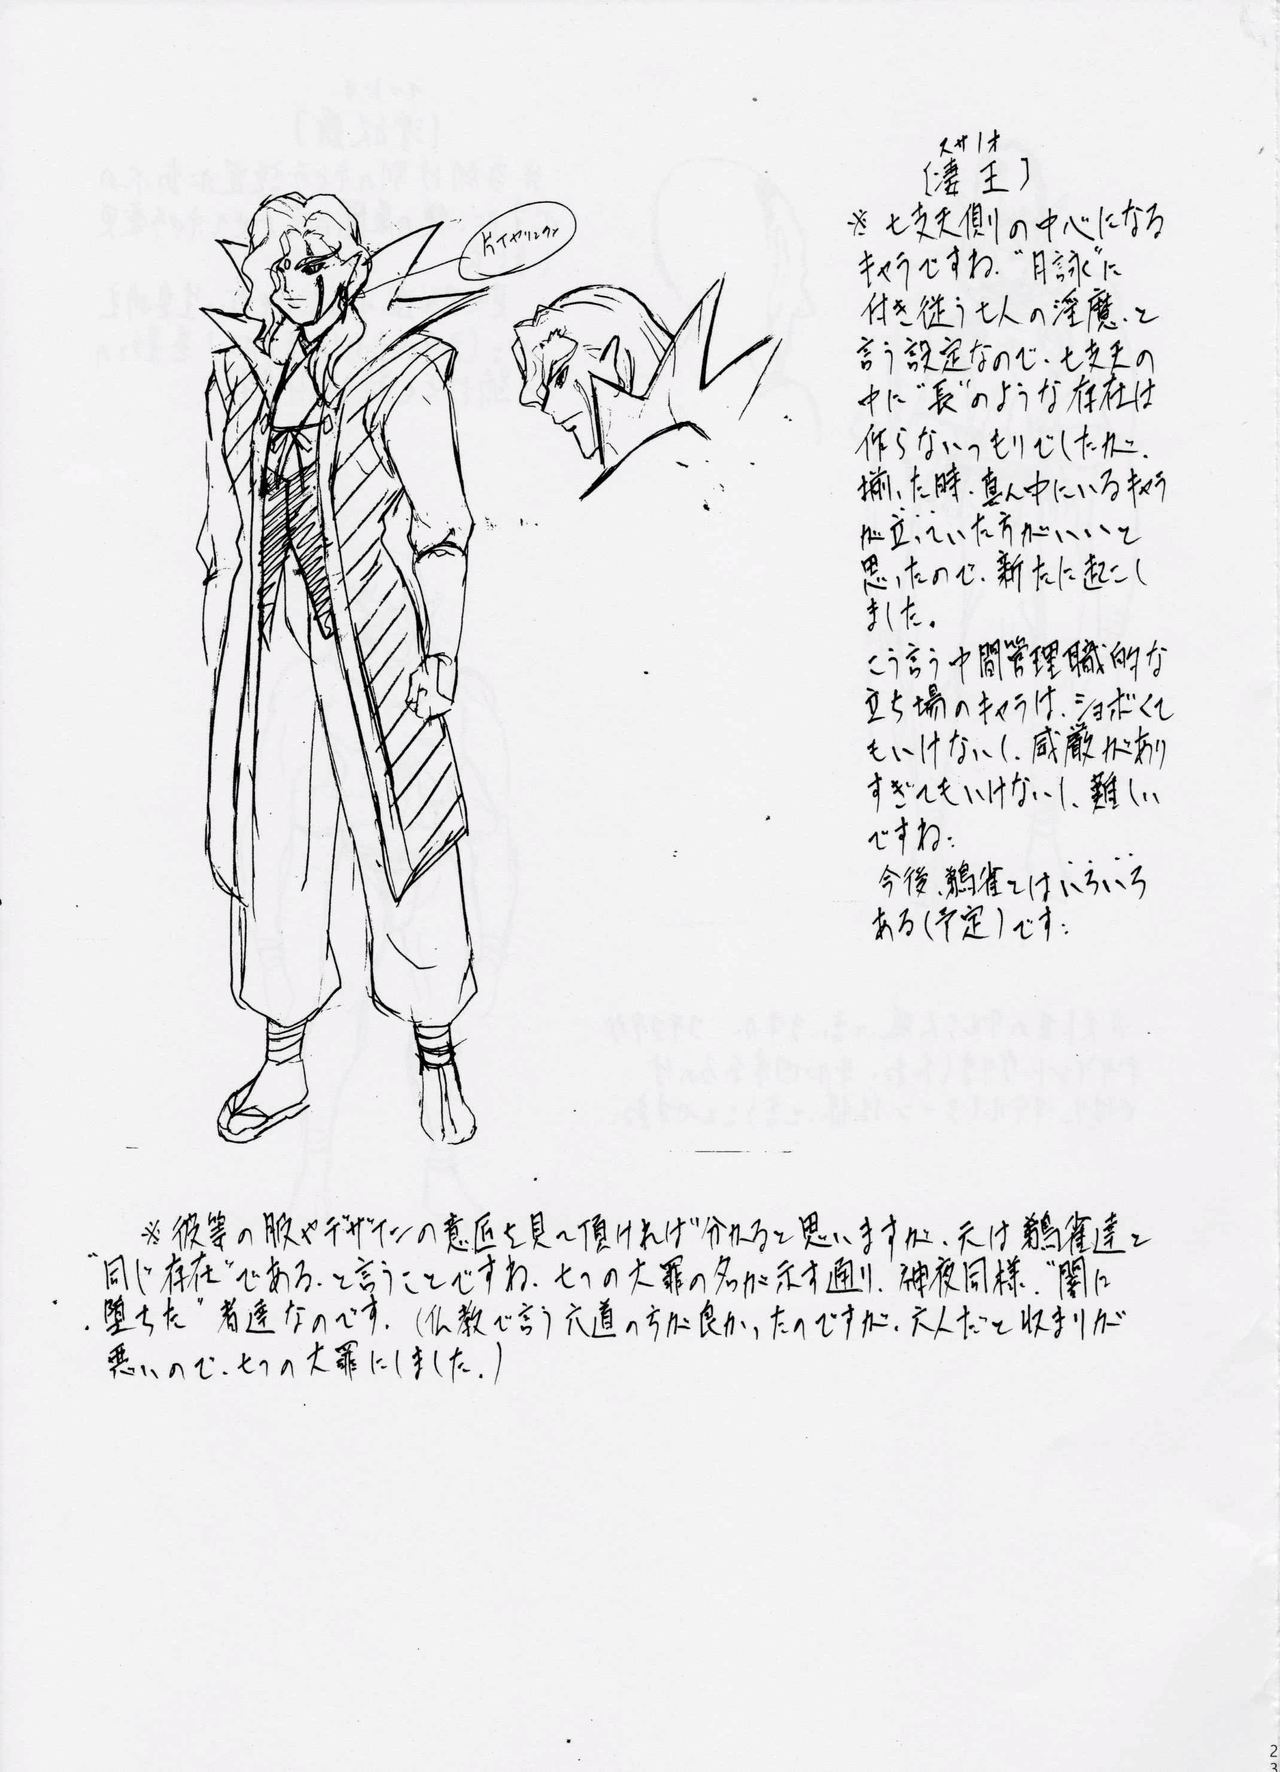 スサノオ
［凄王］
※七支天側の中心になる
キャラですね。"月詠"に
付き従う七人の淫魔、と
言う設定なので、七支天の
中に"長"のような存在は
作らないつもりでしたが、
揃った時、真ん中にいるキャラ
が立っていた方がいいと
思ったので、新たに起こし
ました。
こう言う中間管理職的な
立ち場のキャラは、ショボくて
もいけないし、威厳があり
すぎてもいけないし、難しい
ですね…
今後、鵺雀とはいろいろ
ある(予定)です…
片イヤリング
※彼等の服やデザインの意匠を見て頂ければ分かると思いますが、元は鵺雀達と
"同じ存在"である、と言うことですね。七つの大罪の名が示す通り、神夜同様、"闇に
堕ちた"者達なのです。(仏教で言う六道の方が良かったのですが、六人だと収まりが
悪いので、七つの大罪にしました。)
23